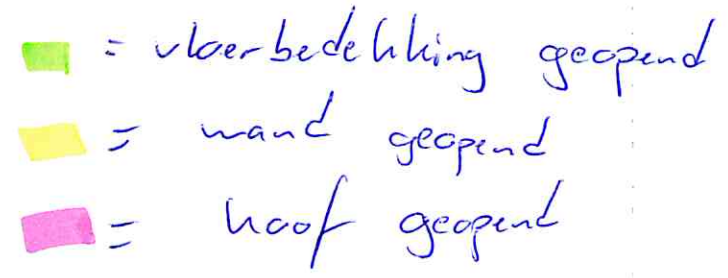 = vloerbedekking geopend
= wand geopend
= koof geopend